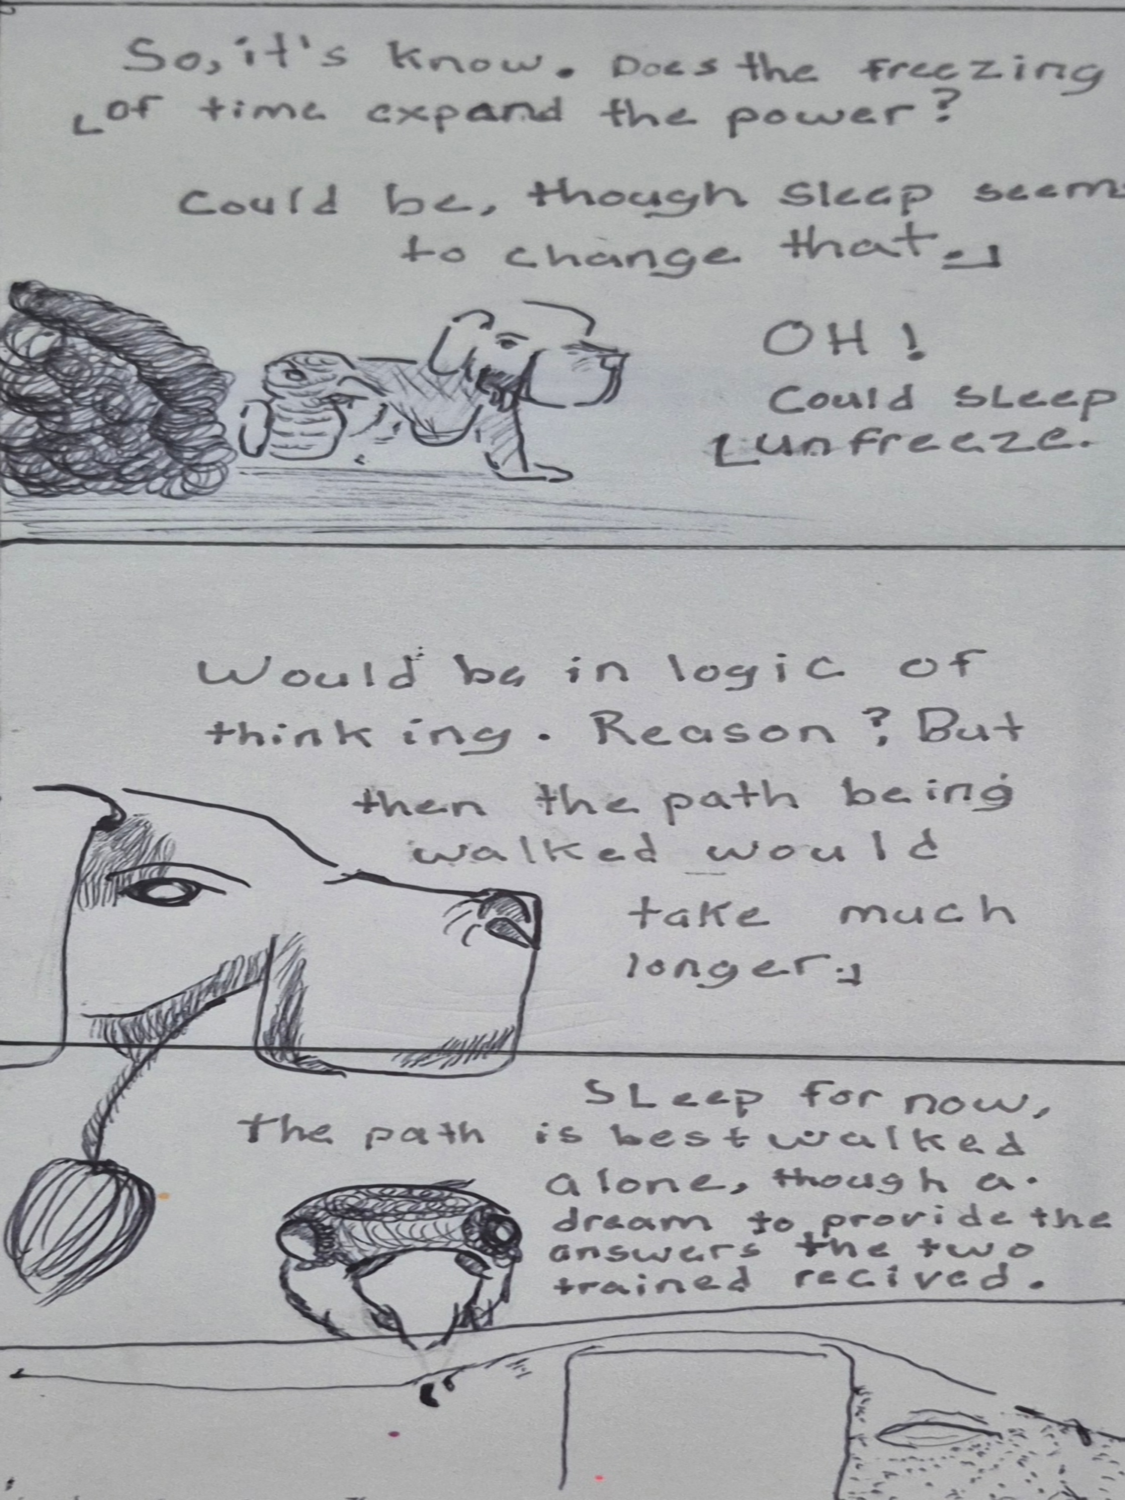 So, it's know. Does the freezing
of time expand the power?
Could be, though sleep seem
to change that.
OH!
Could sleep
unfreeze.
Would be in logic of
thinking. Reason? But
then the path being
walked would
take much
longer.
Sleep for now,
the path is best walked
alone, though a.
dream to provide the
answers the two
trained recived.